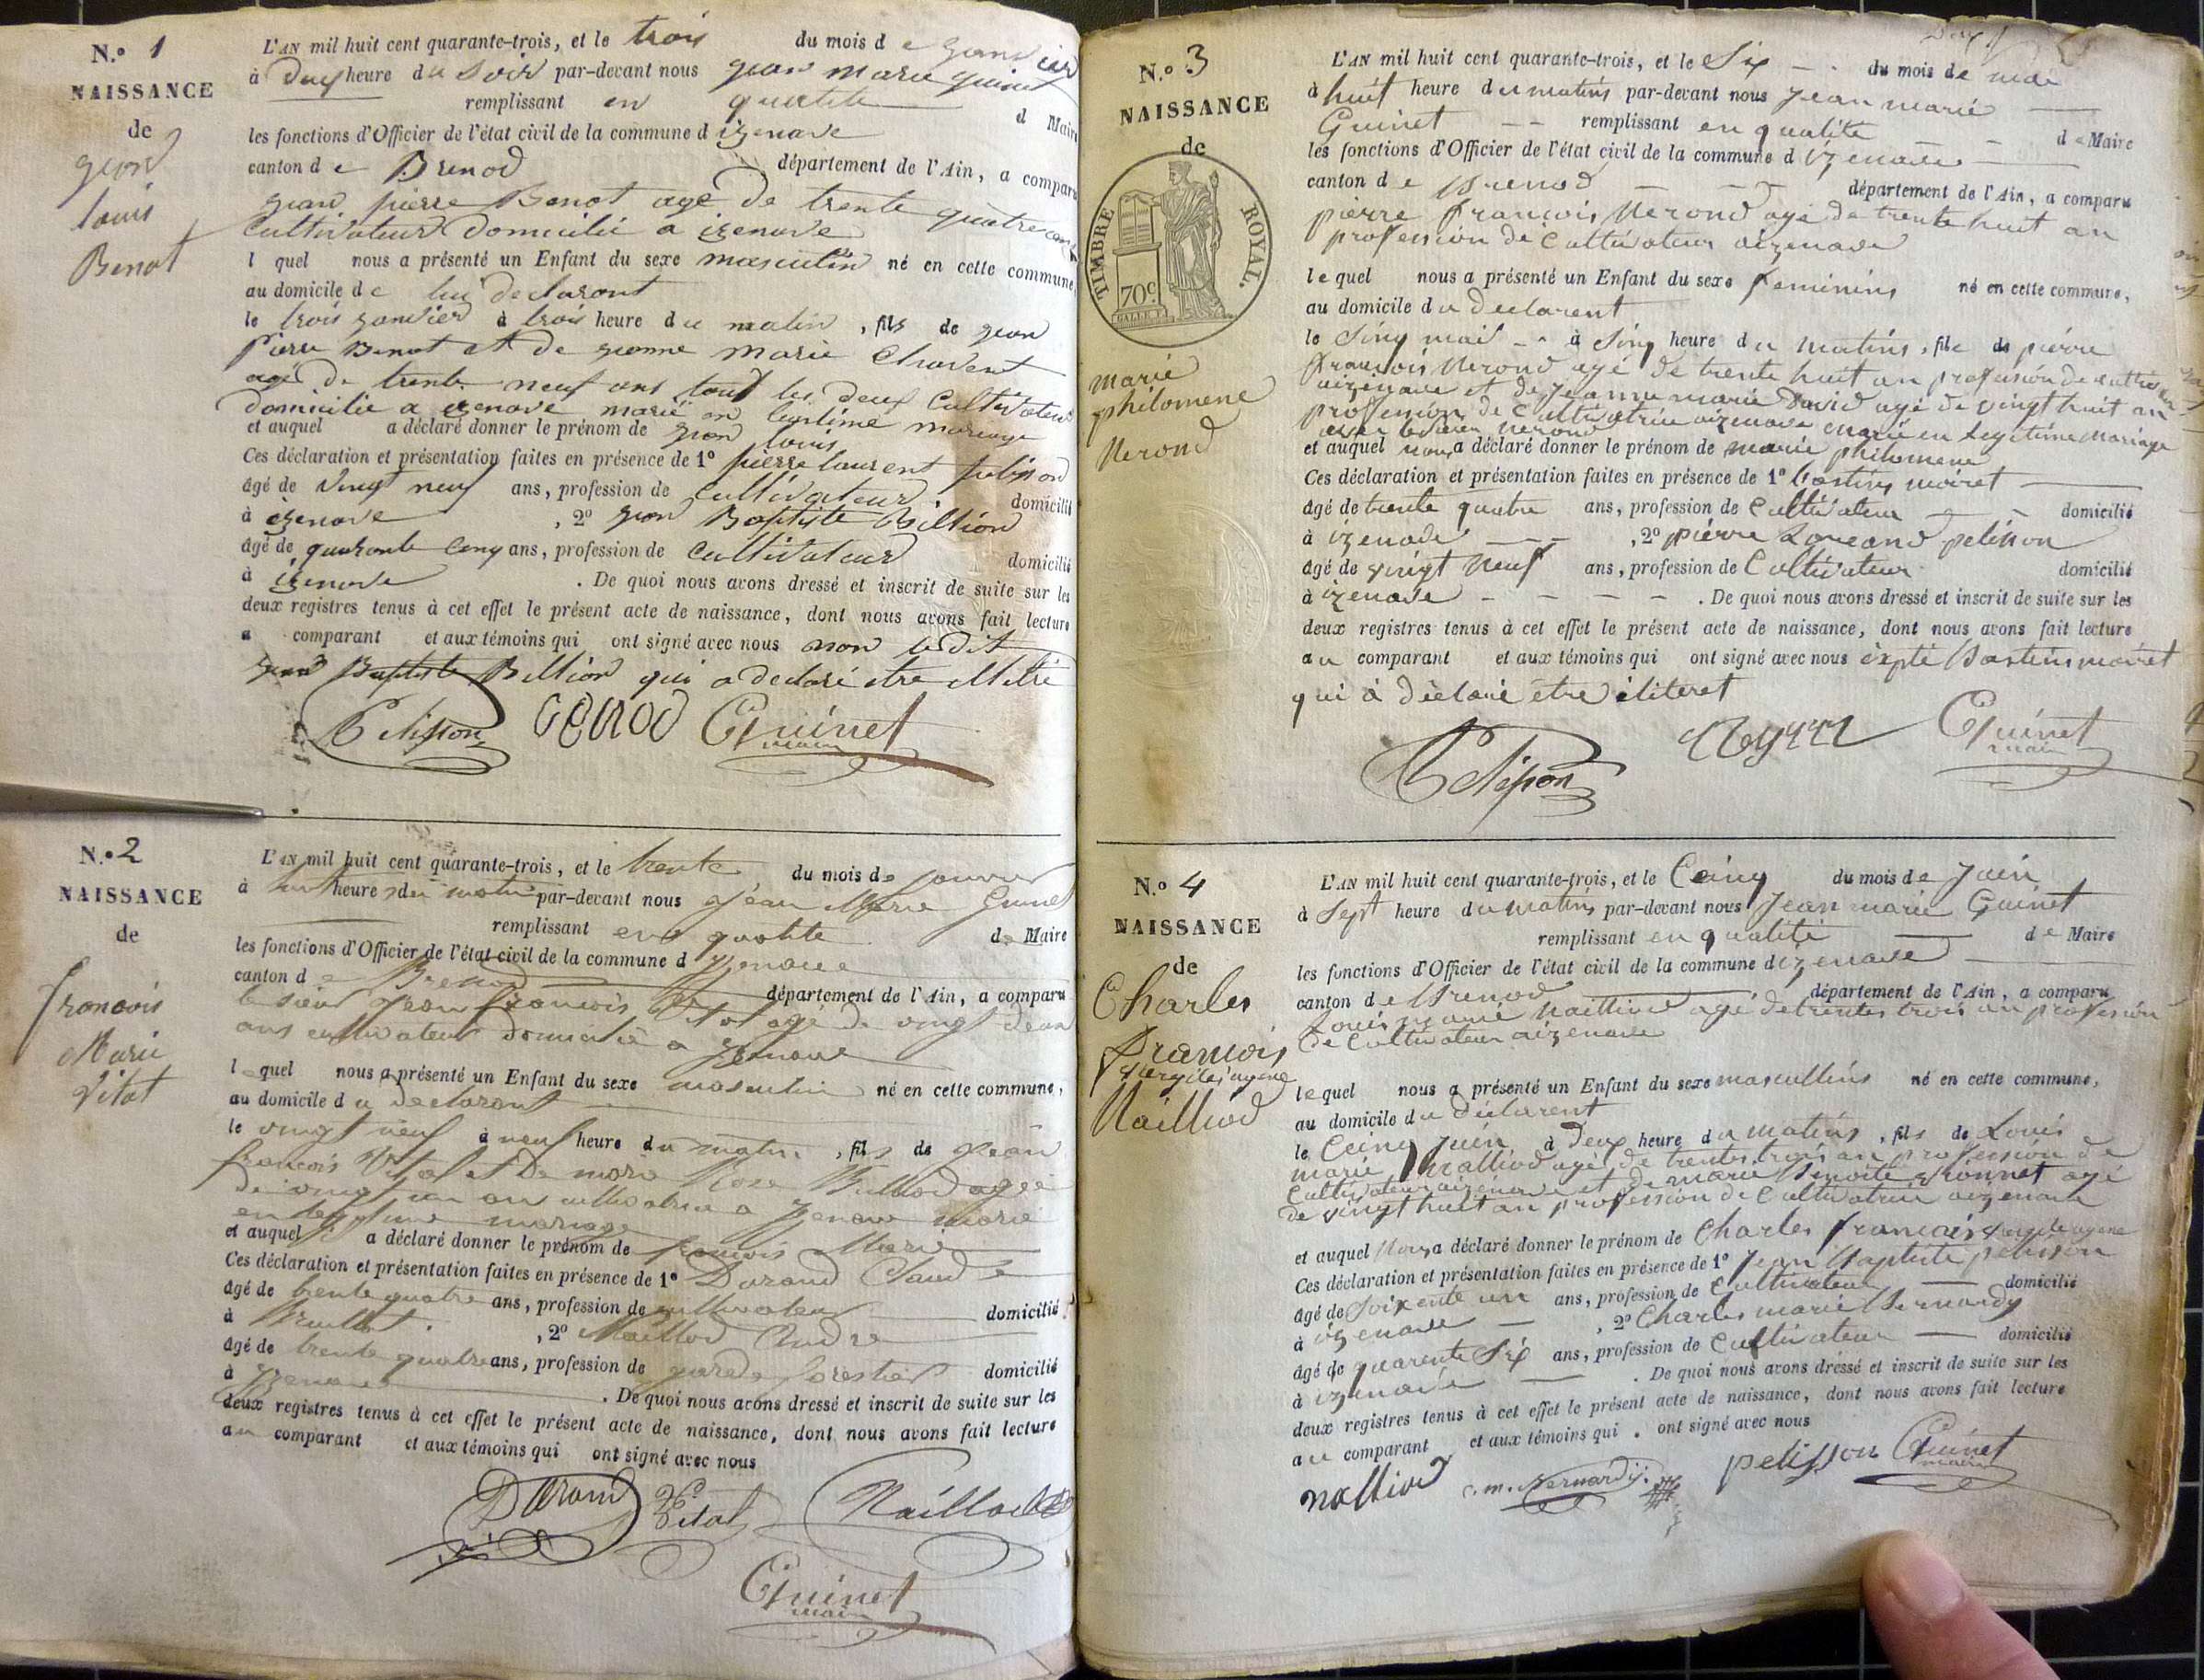 N.o 1
NAISSANCE
de
jean
louis
Benot
L'AN mil huit cent quarante-trois, et le trois du mois de janvier
à deux heure du soir par-devant nous jean marie guinet
remplissant en qualité d Maire
les fonctions d'Officier de l'état civil de la commune d izenave
canton d e Brenod département de l'Ain, a comparu
jean pierre Benot agé de trente quatre ans
Cultivateur domicilié a izenave
l quel nous a présenté un Enfant du sexe masculin né en cette commune,
au domicile de lui declarant
le trois janvier à trois heure du matin, fils de jean
Pierre Benot et de jeanne marie Charvent
agé de trente neuf ans tout les deux Cultivateur
domicilie a izenave marié en legitime mariage
et auquel a déclaré donner le prénom de jean louis
Ces déclaration et présentation faites en présence de 1o pierre laurent pelisson
âgé de vingt neuf ans, profession de Cultivateur domicilié
à izenave, 2o jean Baptiste Billion
âgé de quaronte cinq ans, profession de Cultivateur domicilié
à izenave. De quoi nous avons dressé et inscrit de suite sur les
deux registres tenus à cet effet le présent acte de naissance, dont nous avons fait lecture
a comparant et aux témoins qui ont signé avec nous non ledit
jean Baptiste Billion qui a declaré etre illetré
Pelisson Benod Guinet
maire
N.o 2
NAISSANCE
de
francois
Marie
Vitat
L'AN mil huit cent quarante-trois, et le trente du mois de janvier
à huit heure du matin par-devant nous Jean Marie Guinet
remplissant en qualité de Maire
les fonctions d'Officier de l'état civil de la commune d Yzenave
canton de Brenod département de l'Ain, a comparu
le sieur Jean francois Vitat agé de vingt deux
ans cultivateur domicilié a Yzenave
lequel nous a présenté un Enfant du sexe masculin né en cette commune,
au domicile du declarant
le vingt neuf à neuf heure du matin, fils de Jean
francois Vital et de marie Rose Billiod agée
de vingt un an cultivatrice a Yzenave marié
en legitime mariage
et auquel a déclaré donner le prénom de françois Marie
Ces déclaration et présentation faites en présence de 1o Durand Claude
âgé de trente quatre ans, profession de cultivateur domicilié
à, 2o Maillod André
âgé de trente quatre ans, profession de garde forestier domicilié
à Yzenave. De quoi nous avons dressé et inscrit de suite sur les
deux registres tenus à cet effet le présent acte de naissance, dont nous avons fait lecture
au comparant et aux témoins qui ont signé avec nous
Durand Vital Naillod
Guinet
maire
N.o 3
NAISSANCE
de
TIMBRE ROYAL.
70c
marie
philomene
Nerond
L'AN mil huit cent quarante-trois, et le Six du mois de mai
à huit heure du matins par-devant nous jean marie
Guinet remplissant en qualité de Maire
les fonctions d'Officier de l'état civil de la commune d izenave
canton de Brenod département de l'Ain, a comparu
pierre françois Nerond agé de trente huit an
profession de Cultivateur aizenave
lequel nous a présenté un Enfant du sexe feminins né en cette commune,
au domicile du declarent
le Sinq mai à Sinq heure du matins, file de pierre
françois Nerond agé de trente huit an profession de
aizenave et de jeanne marie David agé de vingt huit an
profession de Cultivatrice aizenave marié en legitime mariage
avec Nerond
et auquel nous a déclaré donner le prénom de marie philomene
Ces déclaration et présentation faites en présence de 1o Bastins moiret
âgé de trente quatre ans, profession de Cultivateur domicilié
à izenave, 2o pierre pelisson
âgé de vingt neuf ans, profession de Cultivateur domicilié
à izenave. De quoi nous avons dressé et inscrit de suite sur les
deux registres tenus à cet effet le présent acte de naissance, dont nous avons fait lecture
au comparant et aux témoins qui ont signé avec nous moiret
qui à déclaré être iliteret
Pelisson Guinet
maire
N.o 4
NAISSANCE
de
Charles
François
Nailliod
L'AN mil huit cent quarante-trois, et le Cinq du mois de Juin
à Sept heure du matins par-devant nous Jean marie Guinet
remplissant en qualité de Maire
les fonctions d'Officier de l'état civil de la commune d izenave
canton de Brenod département de l'Ain, a comparu
Louis marie Naillod agé de trentes trois an profession
de Cultivateur aizenave
lequel nous a présenté un Enfant du sexe mascullins né en cette commune,
au domicile du déclarent
le Cinq Juin à deux heure du matins, fils de Louis
marie Nalliod agé de trentes trois an profession de
Cultivateur aizenave et de marie Benoite agé
de vingt huit an profession de Cultivatrice aizenave
et auquel Nous a déclaré donner le prénom de Charles françois
Ces déclaration et présentation faites en présence de 1o Jean Baptiste pelisson
âgé de Soixente un ans, profession de Cultivateur domicilié
à izenave, 2o Charles marie Bernardy
âgé de quarente Six ans, profession de Cultivateur domicilié
à izenave. De quoi nous avons dressé et inscrit de suite sur les
deux registres tenus à cet effet le présent acte de naissance, dont nous avons fait lecture
au comparant et aux témoins qui ont signé avec nous
nalliod c. m. Bernardy pelisson Guinet
maire